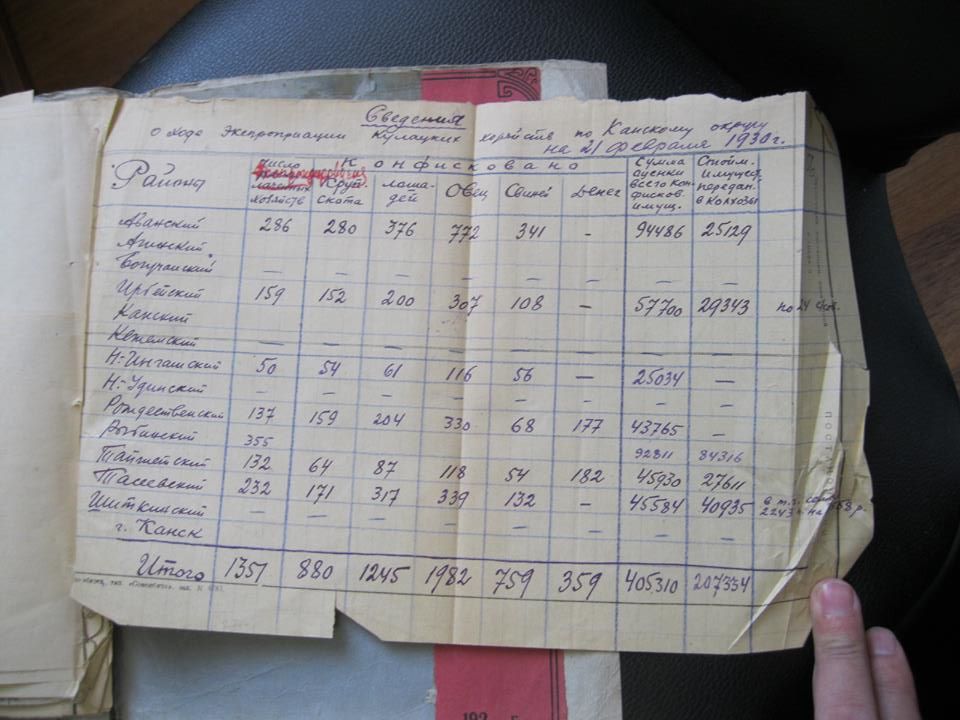 Сведения
о ходе Экспроприации Кулацких хозяйств по Канскому округу
на 21 февраля 1930 г.
Района Число хозяйств Конфисковано Круп. Скота лошадей Овец Свиней Денег Сумма оценки всего Конфисков. имущ. Стоим. имущест. передан. в Колхозы
Абанский 286 280 376 772 341 - 94486 25129
Агинский
Богучанский — — — — — — — —
Ирбейский 159 152 200 307 108 — 57700 29343 по 24
Канский
Кежемский — — — — — — — —
Н-Ингашский 50 54 61 116 56 — 25034 —
Н-Удинский - - - - - - - -
Рождественский 137 159 204 330 68 177 43765 —
Рыбинский 355 92811 84316
Тайшетский 132 64 87 118 54 182 45930 27611
Тасеевский 232 171 317 339 132 - 45584 40935 в т.ч.
Шиткинский - - - - - - - -
г. Канск
Итого 1351 880 1245 1982 759 359 405.310 207334
192